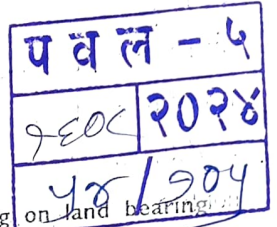 प व ल - ५
२०२४
५४/१०५
g on land bearing